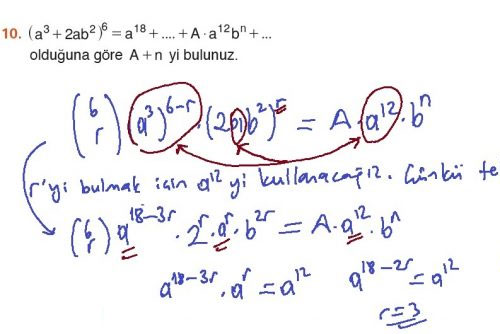 10. (a³ + 2ab²)⁶ = a¹⁸ + .... + A · a¹²bⁿ + ...
olduğuna göre A + n yi bulunuz.
(6 r) (a³)⁶⁻ʳ · (2ab²)ʳ = A · a¹² · bⁿ
r'yi bulmak için a¹² yi kullanacağız. Çünkü te
(6 r) a¹⁸⁻³ʳ · 2ʳ · aʳ · b²ʳ = A · a¹² · bⁿ
a¹⁸⁻³ʳ · aʳ = a¹² a¹⁸⁻²ʳ = a¹²
r = 3